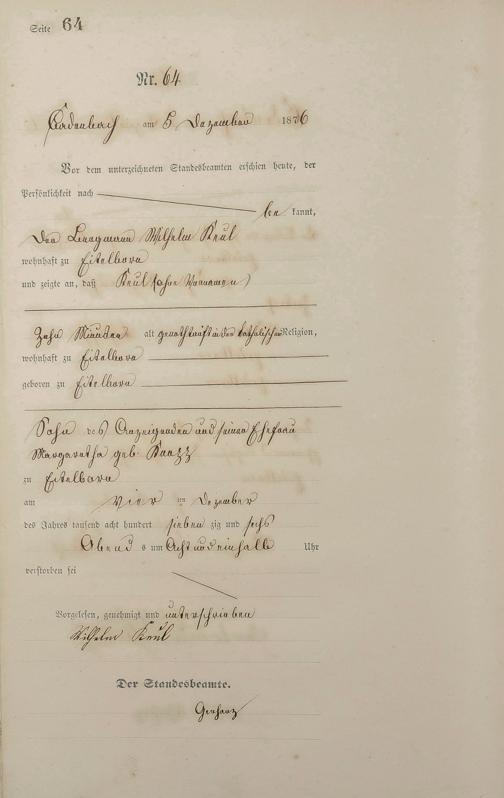 Seite 64
Nr. 64
Cadenbach am 5 Dezember 1876
Vor dem unterzeichneten Standesbeamten erschien heute, der
Persönlichkeit nach
be kannt,
Der Bergmann Wilhelm Keul
wohnhaft zu Eitelborn
und zeigte an, daß Keul (ohne Vornamen)
Zehn Minuten alt katholischer Religion,
wohnhaft zu Eitelborn
geboren zu Eitelborn
Sohn des Anzeigenden und seiner Ehefrau
Margaretha geb.
zu Eitelborn
am vier ten Dezember
des Jahres tausend acht hundert sieben zig und sechs
Abend s um Acht und einhalb Uhr
verstorben sei
Vorgelesen, genehmigt und unterschrieben
Wilhelm Keul
Der Standesbeamte.
Gerharz